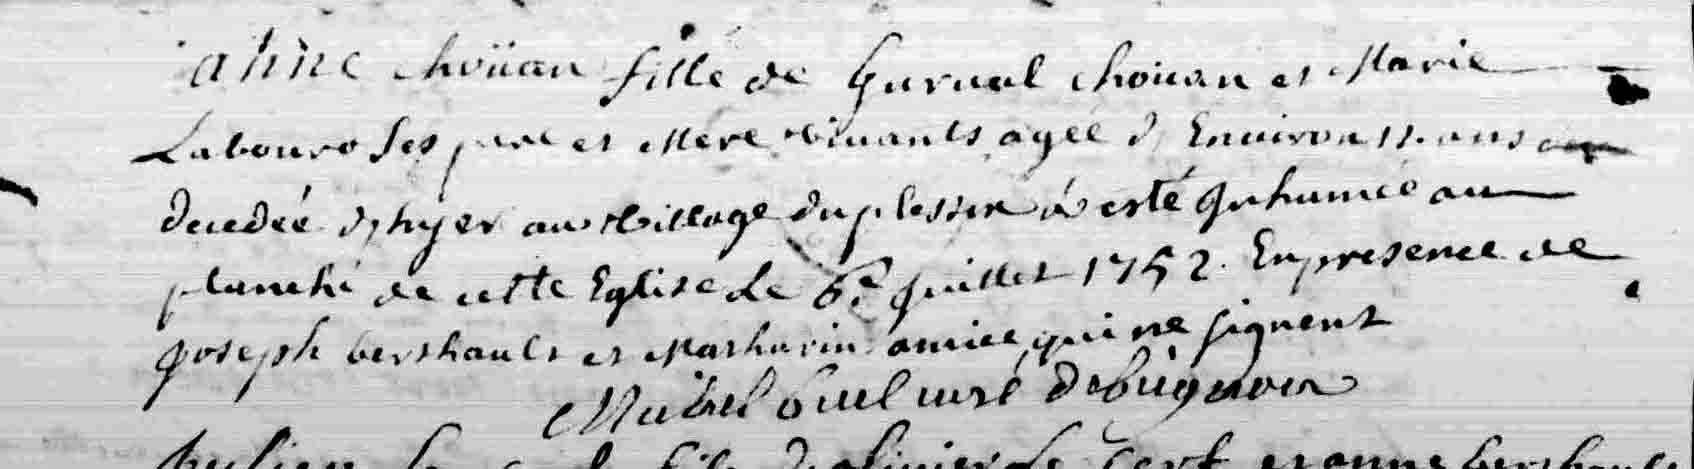 anne choüan fille de Gurval choüan et Marie
Labouro Ses pere et Mere vivants agée d'Environ 11. ans
decedée d'hyer au Village duplessix à esté Inhumée au
planché de cette Eglise Le 6.e Juillet 1752. En presence de
Joseph bershault et Mathurin amice qui ne signent
curé debignon
Julien fils d'olivier Le Cerf et anne bershault